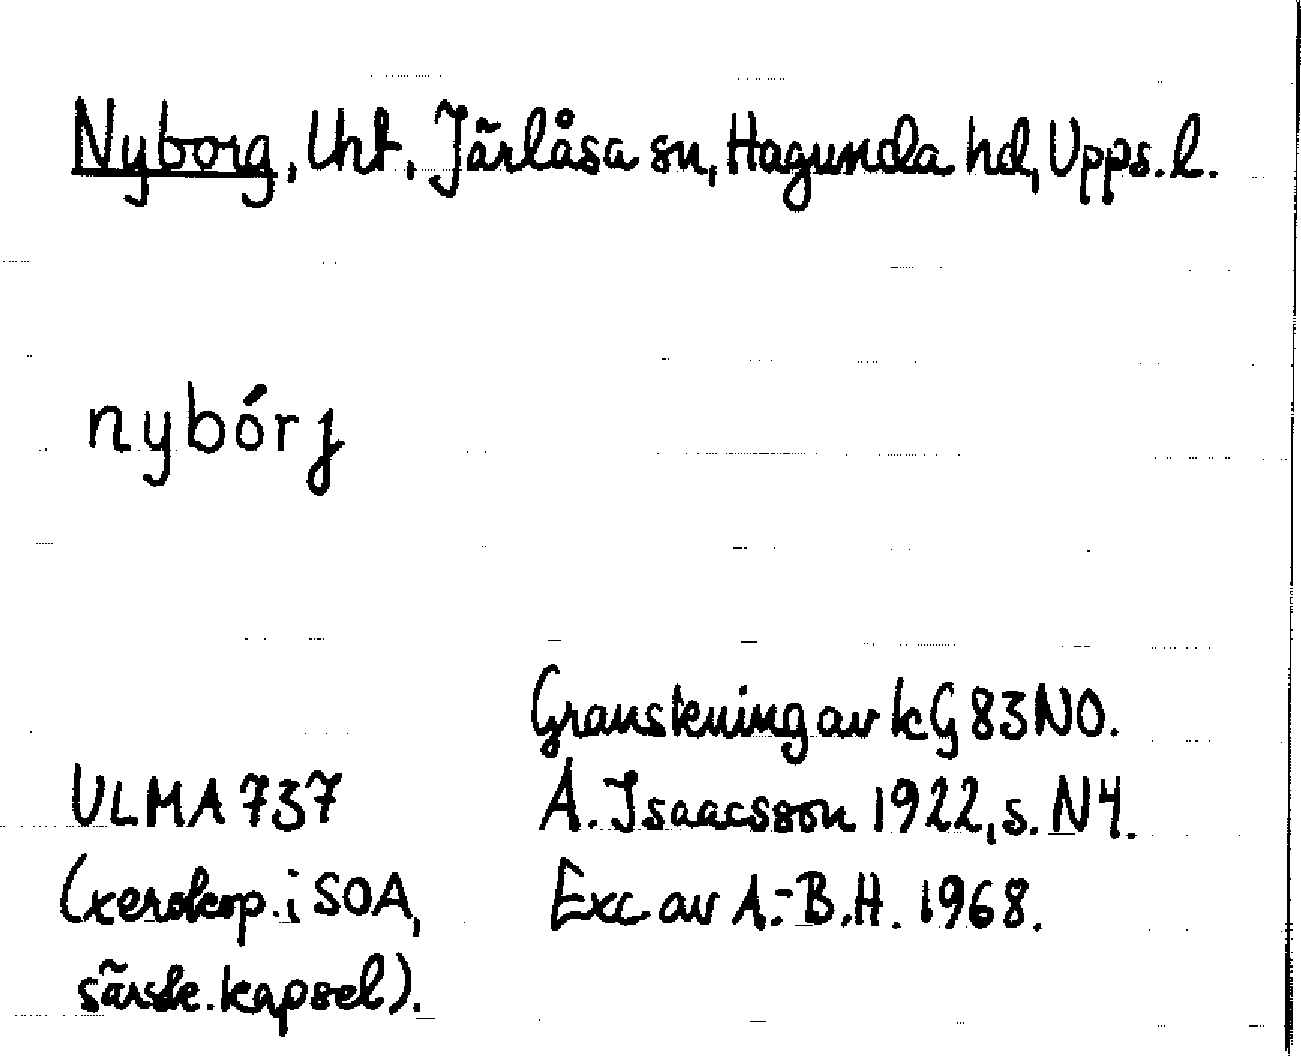 Nyborg, Uht, Järlåsa sn, Hagunda hd, Upps. l.
nybórj
Granskning av kG 83 NO.
ULMA 737 A. Isaacsson 1922, s. N4.
(xerokop. i SOA, Exc av A.-B.H. 1968.
särsk. kapsel).